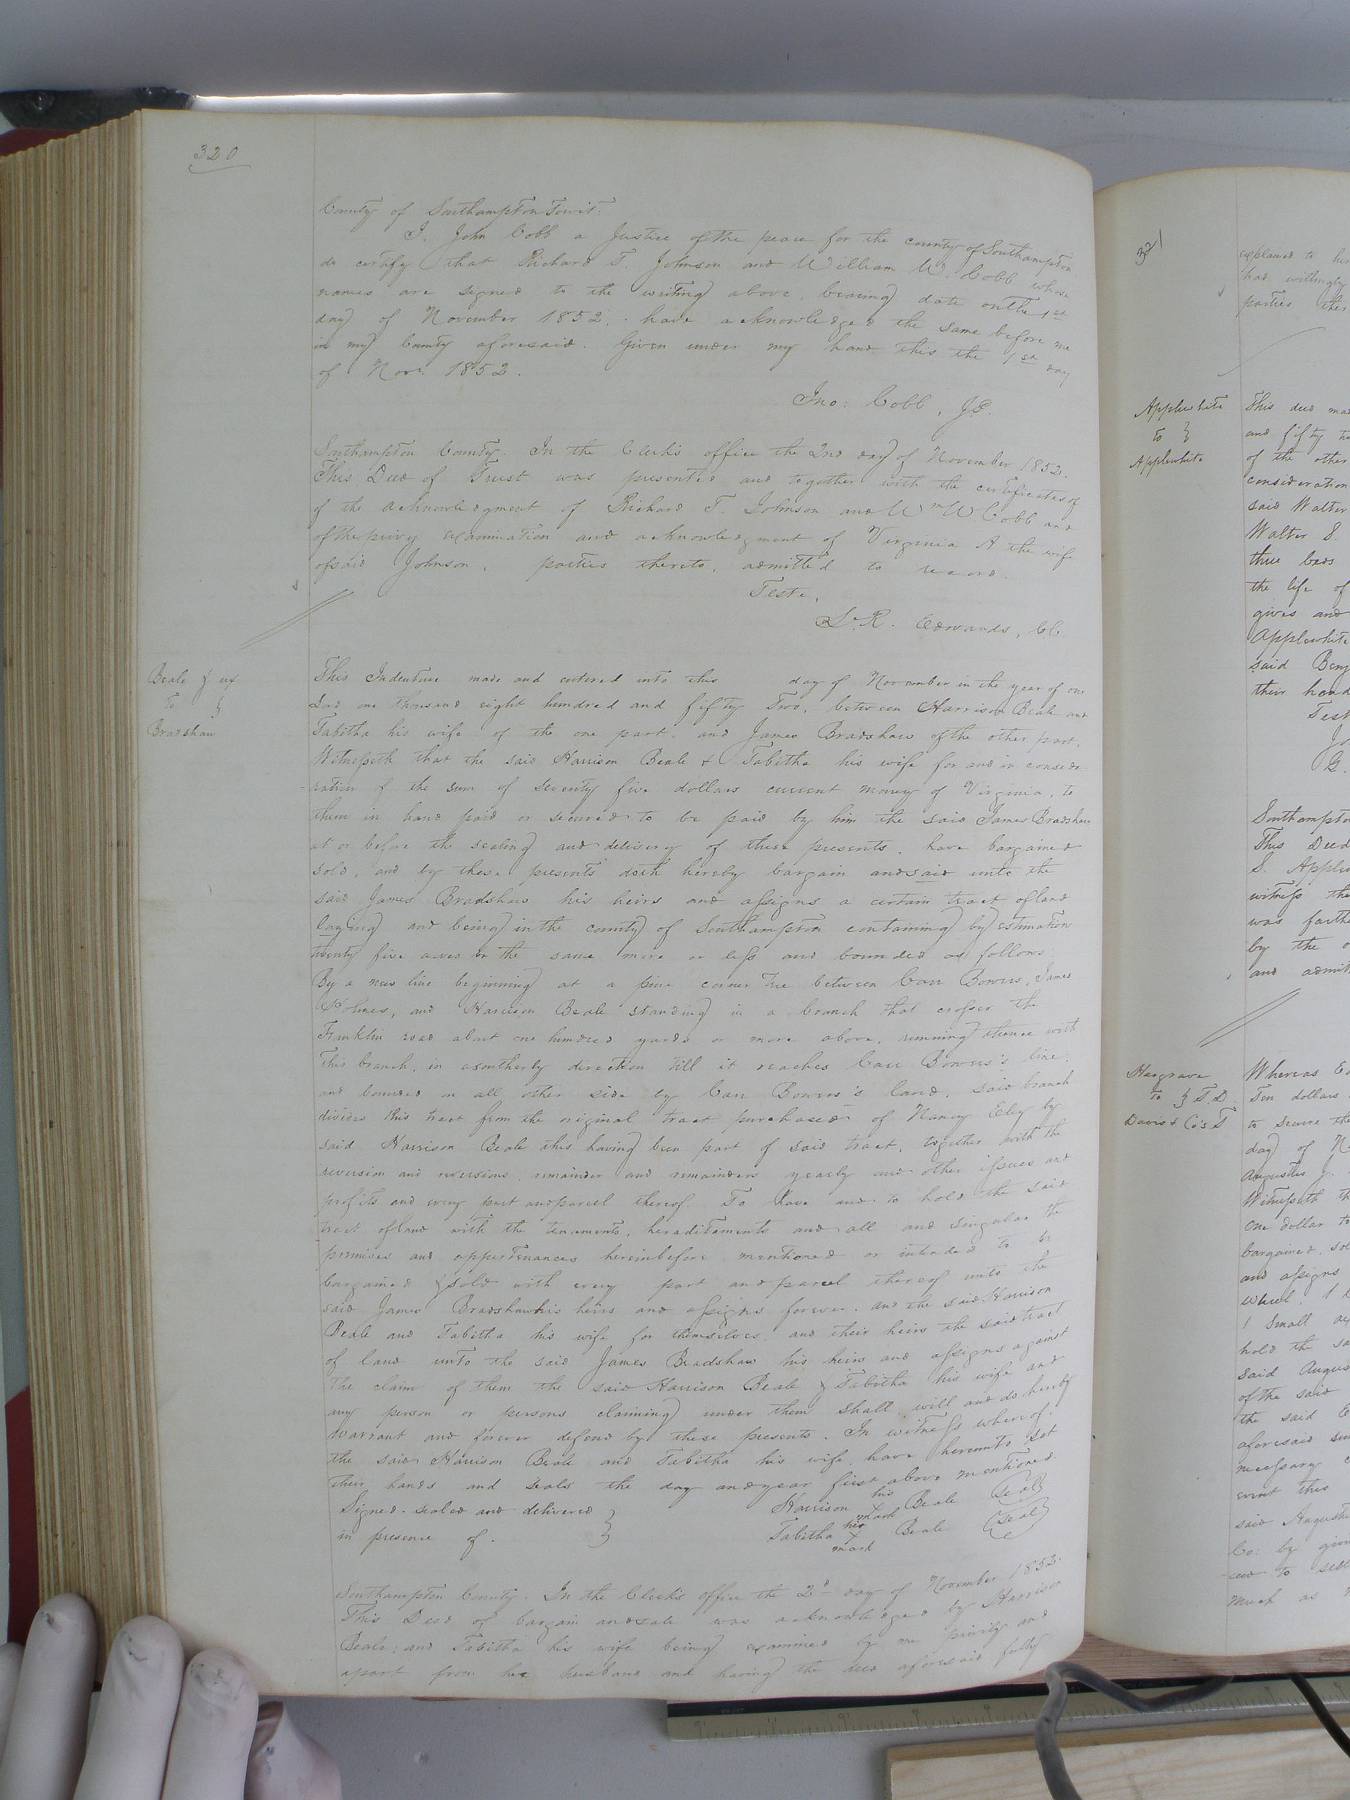 320
County of Southampton Towit:
I. John Cobb a Justice of the peace for the county of Southampton
do certify that Richard T. Johnson and William W. Cobb whose
names are signed to the writing above, bearing date on the 1st
day of November 1852, have acknowledged the same before me
in my County aforesaid. Given under my hand this the 1st day
of Nov. 1852.
Jno: Cobb, JP.
Southampton County. In the Clerk's office the 2nd day of November 1852.
This Deed of Trust was presented and together with the certificates of
of the acknowledgment of Richard T. Johnson and Wm W Cobb and
of the privy examination and acknowledgment of Virginia A the wife
of said Johnson, parties thereto, admitted to record.
Teste,
L. R. Edwards, CC.
Beale & ux
To }
Bradshaw
This Indenture made and entered into this day of November in the year of our
Lord one thousand eight hundred and fifty Two, between Harrison Beale and
Tabitha his wife of the one part, and James Bradshaw of the other part.
Witnesseth that the said Harrison Beale & Tabitha his wife for and in conside
-ration of the sum of seventy five dollars current money of Virginia, to
them in hand paid or secured to be paid by him the said James Bradshaw
at or before the sealing and delivery of these presents, have bargained
sold, and by these presents doth hereby bargain and said unto the
said James Bradshaw his heirs and assigns a certain tract of land
laying and being in the county of Southampton containing by estimation
twenty five acres be the same more or less and bounded as follows
By a new line beginning at a pine corner tree between Carr Bowers, James
Holmes, and Harrison Beale standing in a branch that crosses the
Franklin road about one hundred yards or more above, running thence with
this branch, in a southerly direction till it reaches Carr Bowers's line,
and bounded on all other side by Carr Bowers's land, said branch
divides this tract from the original tract purchased of Nancy Eley by
said Harrison Beale this having been part of said tract, together with the
reversion and reversions, remainder and remainders yearly and other issues and
profits and every part and parcel thereof. To have and to hold the said
tract of land with the tenements, hereditaments and all and singular the
premises and appurtenances hereinbefore mentioned or intended to be
bargained & sold with every part and parcel thereof unto the
said James Bradshaw his heirs and assigns forever. and the said Harrison
Beale and Tabitha his wife for themselves and their heirs the said tract
of land unto the said James Bradshaw his heirs and assigns against
the claim of them the said Harrison Beale & Tabitha his wife and
any person or persons claiming under them shall will and do hereby
warrant and forever defend by these presents. In witness whereof,
the said Harrison Beale and Tabitha his wife have hereunto set
their hands and seals the day and year first above mentioned.
Signed, sealed and delivered }
in presence of. }
his
Harrison X Beale (Seal)
mark
her
Tabitha X Beale (Seal)
mark
Southampton County. In the Clerk's office the 2d day of November 1852.
This Deed of bargain and sale was acknowledged by Harrison
Beale; and Tabitha his wife being examined by me privily and
apart from her husband and having the deed aforesaid fully
321
explained to her
had willingly
parties ther
Applewhite
to }
Applewhite
This deed ma
and fifty t
of the other
consideration
said Walter
Walter S.
three beds
the life of
gives and
Applewhite
said Benj
their hand
Test
Southampton
This Deed
S. Applew
witness the
was furthe
by the o
and admit
Hargrave
to } T.D.
Davis & Co's T
Whereas
Ten dollars
to secure the
day of N
Augustus J.
Witnesseth th
One dollar to
bargained, sol
and assigns
wheel, 1
1 Small
hold the sa
said Augus
of the said
the said E
aforesaid
necessary
event this
said August
Co: by giv
to sell
much as